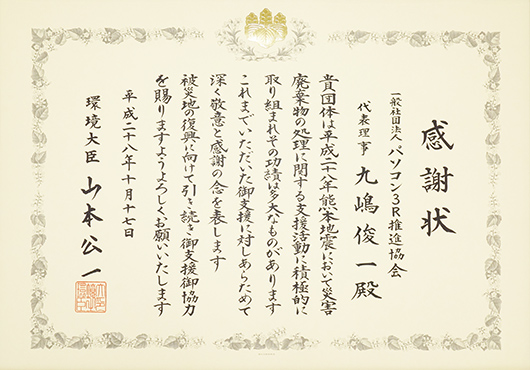 感謝状
一般社団法人パソコン3R推進協会
代表理事 九嶋俊一殿
貴団体は平成二十八年熊本地震において災害
廃棄物の処理に関する支援活動に積極的に
取り組まれその功績は多大なものがあります
これまでいただいた御支援に対しあらためて
深く敬意と感謝の念を表します
被災地の復興に向けて引き続き御支援御協力
を賜りますようよろしくお願いいたします
平成二十八年十月十七日
環境大臣 山本公一